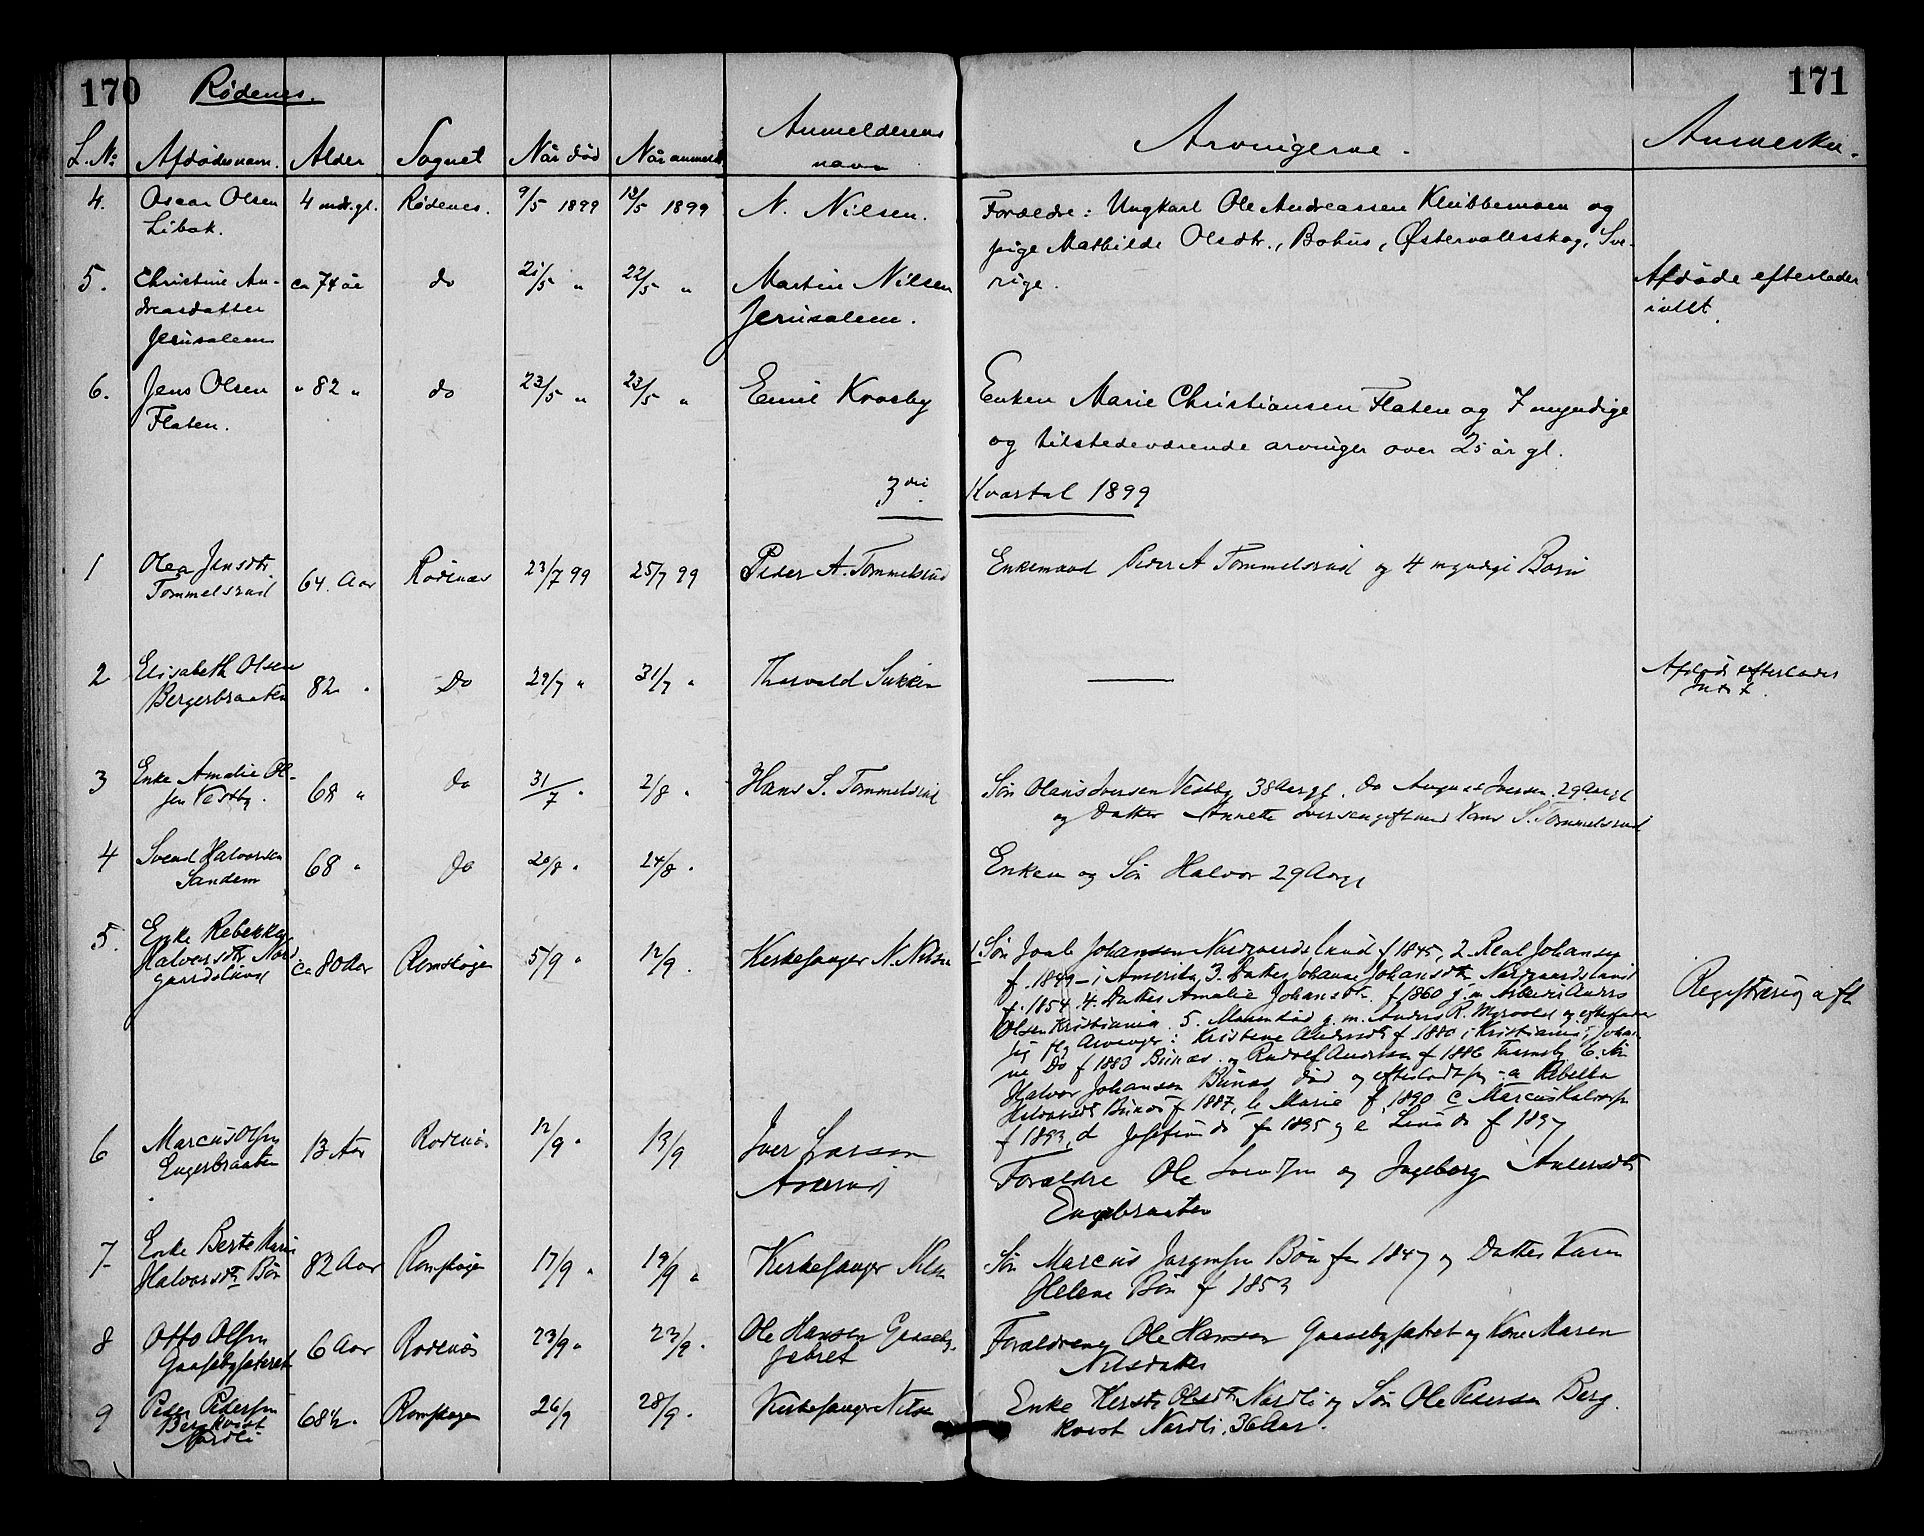 170
Rødenes.
171
L. No Afdødesnavn. Alder Sognet Når død Når anmeldt Anmelderens navn Arvingerne. Anmerkn.
4. Oscar Olsen 4 mdr. gl. Rødenes. 9/5 1899 13/5 1899 N. Nilsen. Forældre: Ungkarl Ole Andreassen Klubbemoen og
Libak. pige Mathilde Olsdtr., Bohus, Østervallsskog, Sve-
5. Christine An- ca 74 år do 21/5 " 22/5 " Martin Nilsen rige. Afdøde efterlader
dreasdatter Jerusalem. intet.
Jerusalem
6. Jens Olsen " 82 " do 23/5 " 23/5 " Emil Krosby Enken Marie Christiansen Flaten og 7 myndige
Flaten. og tilstedeværende arvinger over 25 år gl.
3die Kvartal 1899
1 Olea Jensdtr 64 Aar Rødenæs 23/7 99 25/7 99 Peder A. Tommelsrud Enkemand Peder A Tommelsrud og 4 myndige Børn
Tommelsrud
2 Elisabeth Olsen 82 " Do 29/7 " 31/7 " Thorvald — Afdøde efterlader
Bergerbraaten Intet.
3 Enke Amalie Ol- 68 " do 31/7 " 2/8 " Hans S. Tommelsrud Søn Olaus Iversen Vestby 38 Aar gl. do August Iversen 29 Aar gl
sen Vestby. og Datter Annette Iversen gift med Hans S. Tommelsrud
4 Svend Halvorsen 68 " do 20/8 " 24/8 " Enken og Søn Halvor 29 Aar gl
Sandem
5. Enke Rebekka ca 80 Aar Romskogen 5/9 " 12/9 " Kirkesanger N. Nilsen 1. Søn Johansen Nordgaardslund f 1845, 2. Johansen
Halvorsdtr Nord- f. 1849 – i Amerika, 3. Datter Johanne Johansdtr Nordgaardslund
gaardslund f. 1854. 4. Datter Amalie Johansdtr f 1860 g. m. Arbeider Anders Registrering aft
Olsen Kristiania. 5. g. m. Anders R. og efterlader
sig flg Arvinger: Kristine Andersdtr f 1880 i Kristiania, Johan-
ne Do f 1883 Bunæs og Rudolf Andersen f 1886 6. Søn
Halvor Johansen Bunæs død og efterladt sig: a Rebekka
Halvorsdtr Bunæs f 1887, b Marie f. 1890 c Marcus Halvorsen
f 1893, d Josefine do f 1895 og e do f 1897
6 Marcus Olsen 13 Aar Rødenæs 12/9 " 13/9 Iver Larsen Forældre Ole Svendsen og Ingeborg Andersdtr
Engerbraaten Engebraaten
7 Enke Berte Marie 82 Aar Romskogen 17/9 " 19/9 " Kirkesanger Nilsen Søn Marcus Jørgensen Bøn f. 1847 og Datter Karen
Halvorsdtr Bøn Helene Bøn f 1853
8 Otto Olsen 6 Aar Rødenæs 23/9 " 23/9 " Ole Hansen Gaaseby- Forældrene Ole Hansen Gaasebysætret og Kone Maren
Gaasebysæteret sætret Nilsdatter
9 Peder Petersen 68 ½ " Romskogen 26/9 28/9 " Kirkesanger Nilsen Enke Kersti Olsdtr Nordli og Søn Ole Petersen Berg-
Bergkvist kvist Nordli. 36 Aar.
Nordli